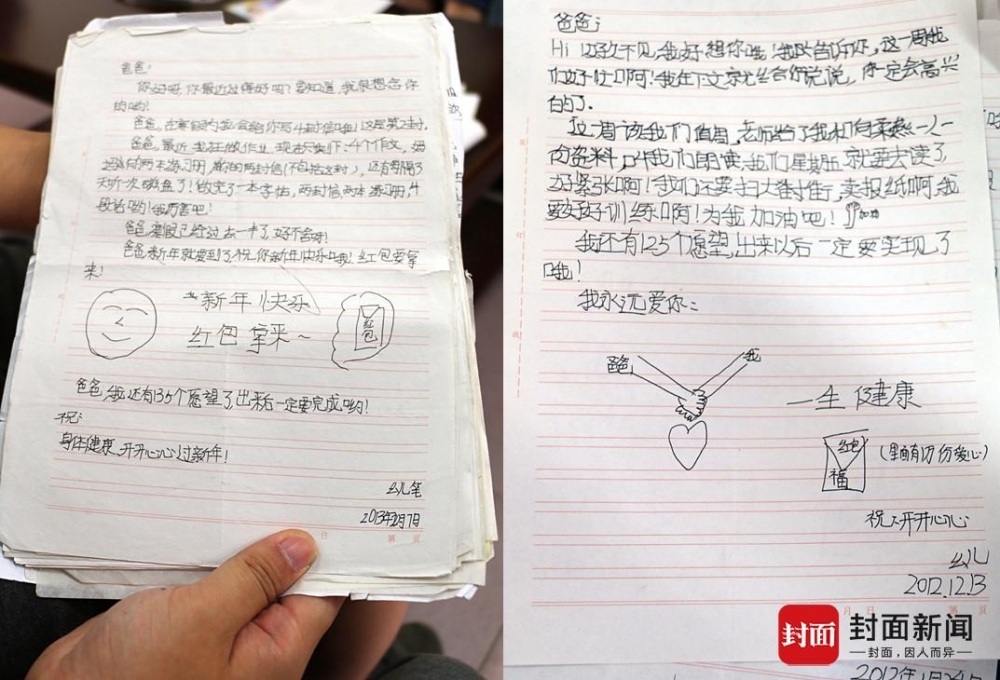 爸爸:
你好呀,你最近过得好吗?要知道,我很想念你
的哟!
爸爸,在寒假内我会给你写4封信哦!这是第2封.
爸爸,最近我狂做作业,现在只剩下:4个作文,
天
两封信,两本练习册,
我厉害吧!
爸爸,寒假已经过去一半了,好不舍呀!
爸爸,新年就要到了,祝你新年快乐哦!红包要拿
来!
新年快乐
红包拿来~
红包
爸爸,我还有135个愿望了,出来后一定要完成哟!
祝:
身体健康、开开心心过新年!
幺儿笔
2013年2月7日
爸爸:
Hi!好久不见,我好想你哦!我告诉你,这一周我
们好忙啊!我在下文就给你说说,你一定会高兴
的了.
这周该我们值周,老师给了我和向柔燃一人一
份资料,叫我们朗读,我们星期五就要去读了,
好紧张啊!我们还要扫大街,卖报纸啊,我
要好好训练啊!为我加油吧!加油
我还有125个愿望,出来以后一定要实现了
哦!
我永远爱你:
爸爸
我
一生健康
红包
福
(里面有1万份爱心)
祝:开开心心
幺儿
2012.12.13
封面
封面新闻
—封面,因人而异—